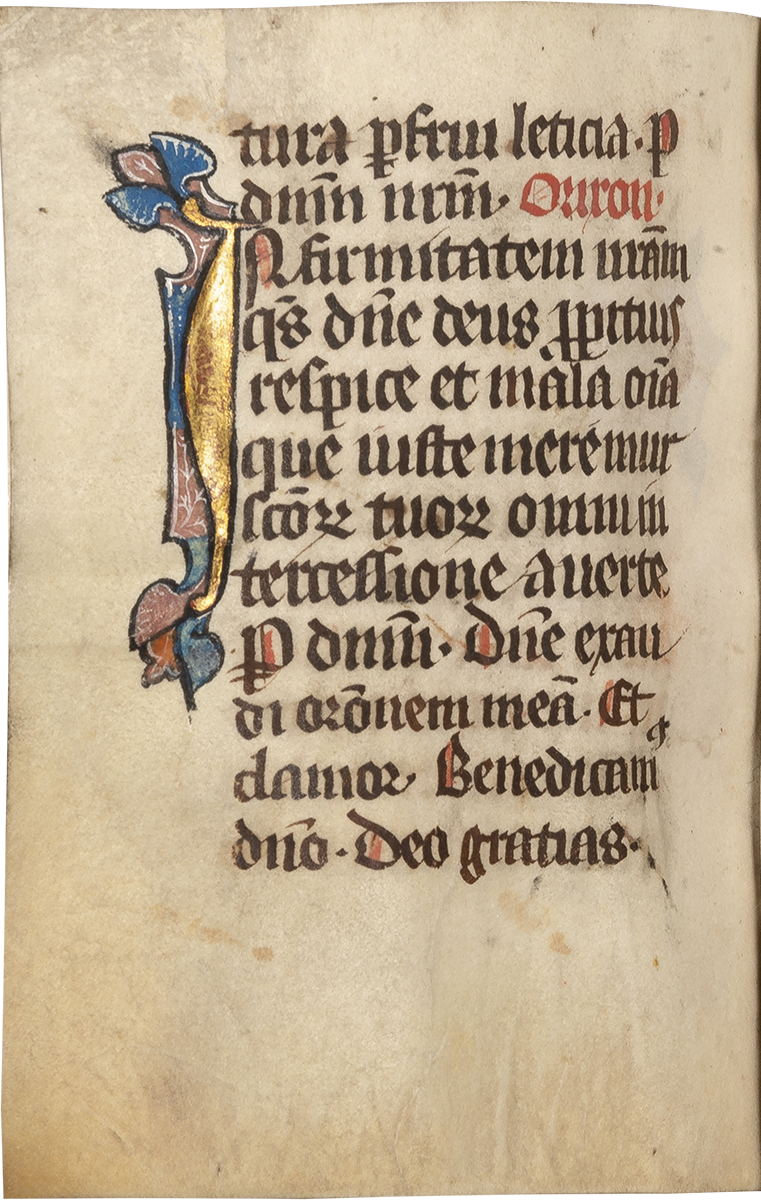 tura ꝑfrui leticia · P
dnm̄ nr̄m · Orixon ·
INfirmitatem nr̄am
qs̄ dn̄e deus ꝓpitius
respice et mala oīa
que iuste meremur
scōꝝ tuoꝝ omniu in
tercessione auerte
P dnm̄ · Dn̄e exau
di orōnem meā · Et
clamor Benedicam
dn̄o · Deo gratias ·